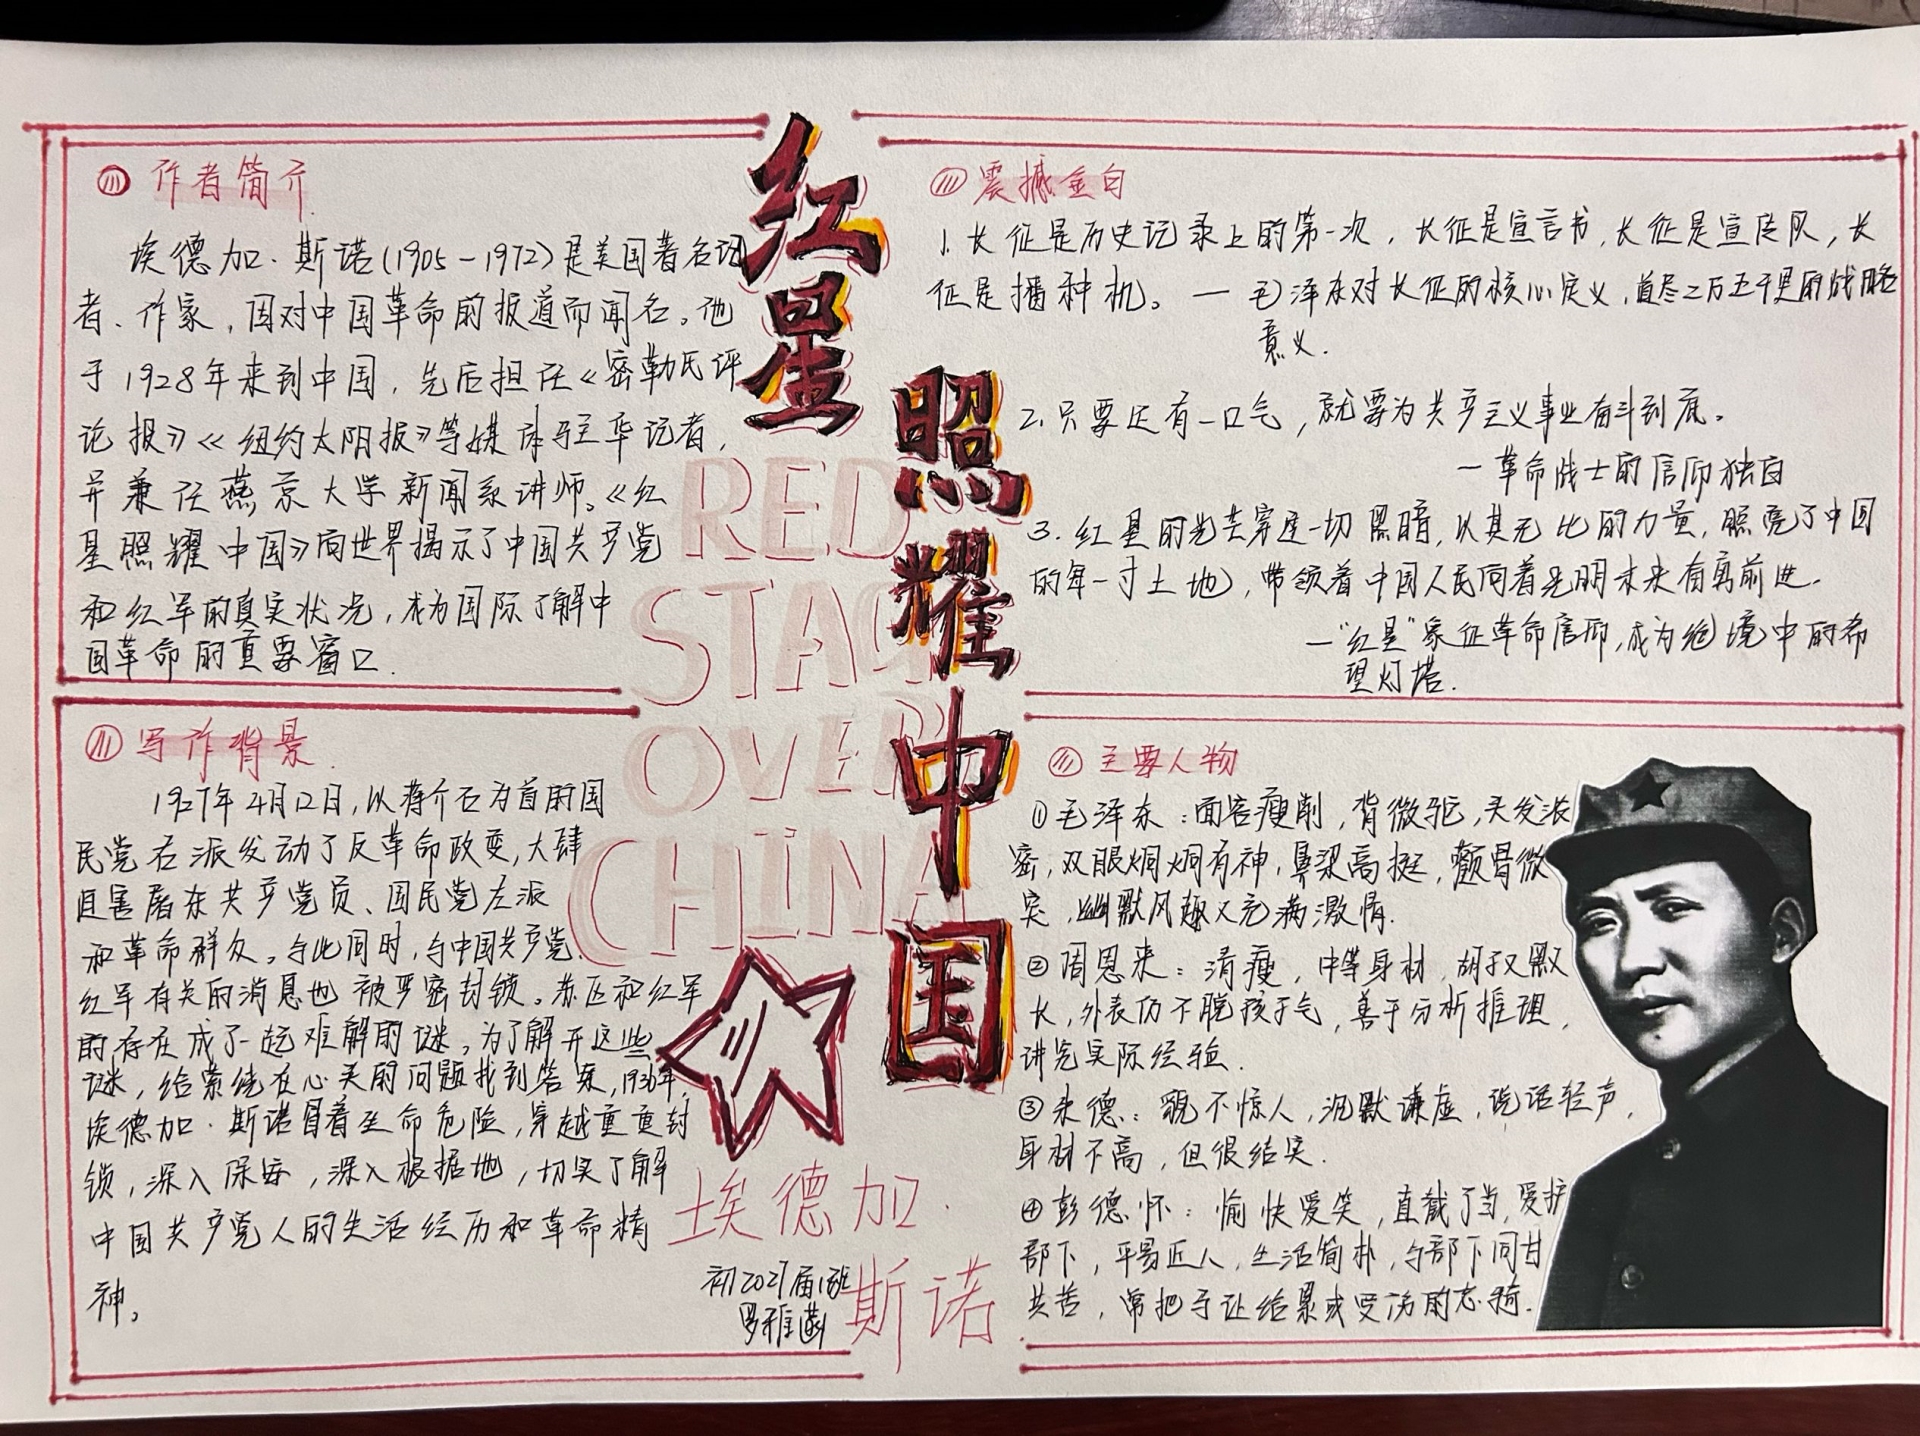 作者简介
埃德加·斯诺(1905-1972)是美国著名记
者、作家，因对中国革命的报道而闻名。他
于1928年来到中国，先后担任《密勒氏评
论报》《纽约太阳报》等媒体驻华记者，
并兼任燕京大学新闻系讲师。《红
星照耀中国》向世界揭示了中国共产党
和红军的真实状况，成为国际了解中
国革命的重要窗口.
写作背景
1927年4月12日，以蒋介石为首的国
民党右派发动了反革命政变，大肆
且害屠东共产党员、国民党左派
和革命群众。与此同时，与中国共产党、
红军有关的消息也被严密封锁。苏区和红军
的存在成了一起难解的谜。为了解开这些
谜，给萦绕在心头的问题找到答案，1936年，
埃德加·斯诺冒着生命危险，穿越重重封
锁，深入保安，深入根据地，切实了解
中国共产党人的生活经历和革命精
神。
红星
照耀中国
RED
STAR
OVER
CHINA
埃德加·
斯诺
初2027届1班
震撼金句
1.长征是历史记录上的第一次，长征是宣言书，长征是宣传队，长
征是播种机。— 毛泽东对长征的核心定义，道尽二万五千里的战略
意义.
2.只要还有一口气，就要为共产主义事业奋斗到底。
—革命战士的信仰独白
3.红星的光芒穿透一切黑暗，以其无比的力量，照亮了中国
的每一寸土地，带领着中国人民向着光明未来奋勇前进.
—“红星”象征革命信仰，成为绝境中的希
望灯塔.
主要人物
①毛泽东：面容瘦削，背微驼，头发浓
密，双眼炯炯有神，鼻梁高挺，颧骨微
突，幽默风趣又充满激情.
②周恩来：清瘦，中等身材，胡子又黑又
长，外表仍不脱孩子气，善于分析推理，
讲究实际经验.
③朱德：貌不惊人，沉默谦虚，说话轻声，
身材不高，但很结实.
④彭德怀：愉快爱笑，直截了当，爱护
部下，平易近人，生活简朴，与部下同甘
共苦，常把马让给累或受伤的志骑.